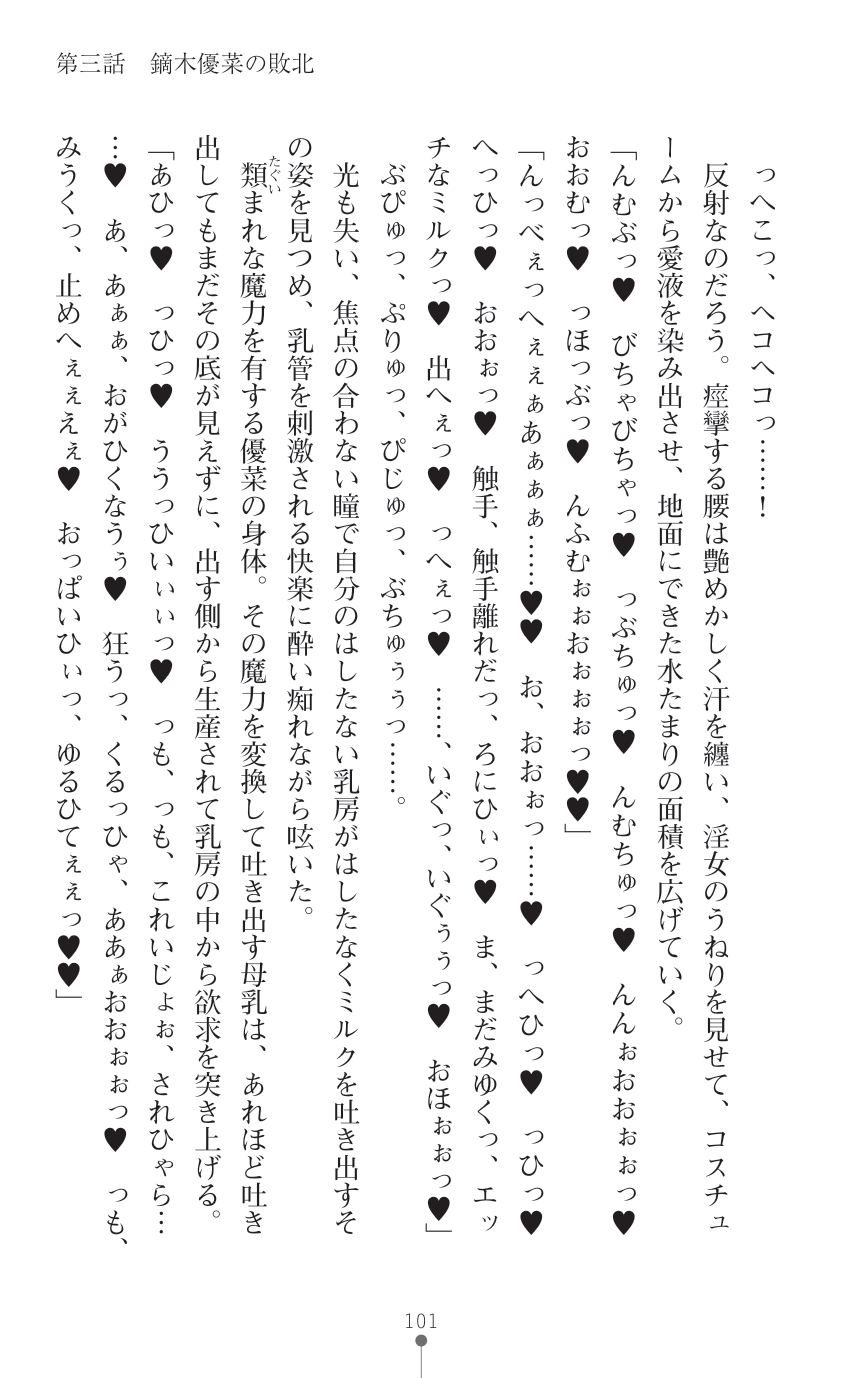 第三話　鏑木優菜の敗北
っへこっ、ヘコヘコっ……！
反射なのだろう。痙攣する腰は艶めかしく汗を纏い、淫女のうねりを見せて、コスチュ
ームから愛液を染み出させ、地面にできた水たまりの面積を広げていく。
「んむぶっ♥　びちゃびちゃっ♥　っぶちゅっ♥　んむちゅっ♥　んんぉおおぉぉっ♥
おおむっ♥　っほっぶっ♥　んふむぉぉおぉぉぉっ♥♥」
「んっべぇっへぇぇぁあぁぁぁ……♥♥　お、おおぉっ……♥　っへひっ♥　っひっ♥
へっひっ♥　おおぉっ♥　触手、触手離れだっ、ろにひぃっ♥　ま、まだみゆくっ、エッ
チなミルクっ♥　出へぇっ♥　っへぇっ♥　……、いぐっ、いぐぅぅっ♥　おほぉぉっ♥」
ぶぴゅっ、ぷりゅっ、ぴじゅっ、ぶちゅぅぅっ……。
光も失い、焦点の合わない瞳で自分のはしたない乳房がはしたなくミルクを吐き出すそ
の姿を見つめ、乳管を刺激される快楽に酔い痴れながら呟いた。
類まれな魔力を有する優菜の身体。その魔力を変換して吐き出す母乳は、あれほど吐き
たぐい
出してもまだその底が見えずに、出す側から生産されて乳房の中から欲求を突き上げる。
「あひっ♥　っひっ♥　ううっひいぃぃっ♥　っも、っも、これいじょぉ、されひゃら…
…♥　あ、あぁぁ、おがひくなうぅ♥　狂うっ、くるっひゃ、ああぁおおぉぉっ♥　っも、
みうくっ、止めへぇぇえぇ♥　おっぱいひぃっ、ゆるひてぇぇっ♥♥」
101